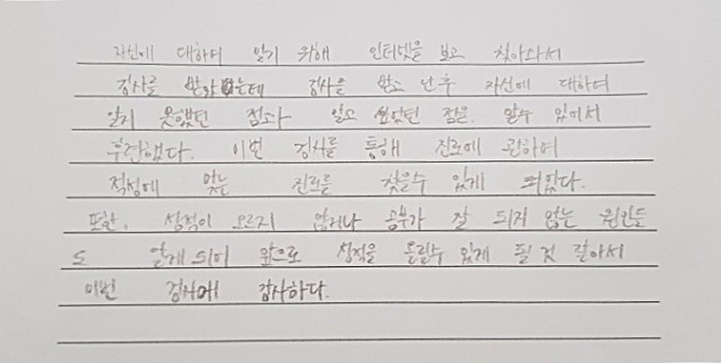 자신에 대하여 알기 위해 인터넷을 보고 찾아와서
검사를 받았는데 검사를 받고 난 후 자신에 대하여
알지 못했던 점과 잊고 있었던 점을 알수 있어서
후련했다. 이번 검사를 통해 진로에 관하여
적성에 맞는 진로를 찾을수 있게 되었다.
또한, 성적이 오르지 않거나 공부가 잘 되지 않는 원인들
도 알게 되어 앞으로 성적을 올릴수 있게 될 것 같아서
이번 검사에 감사하다.